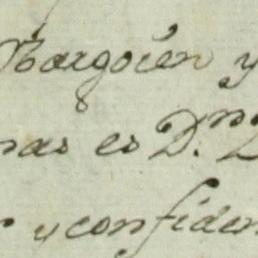 Bargoien y
nas es D.ⁿ D
r y confiden